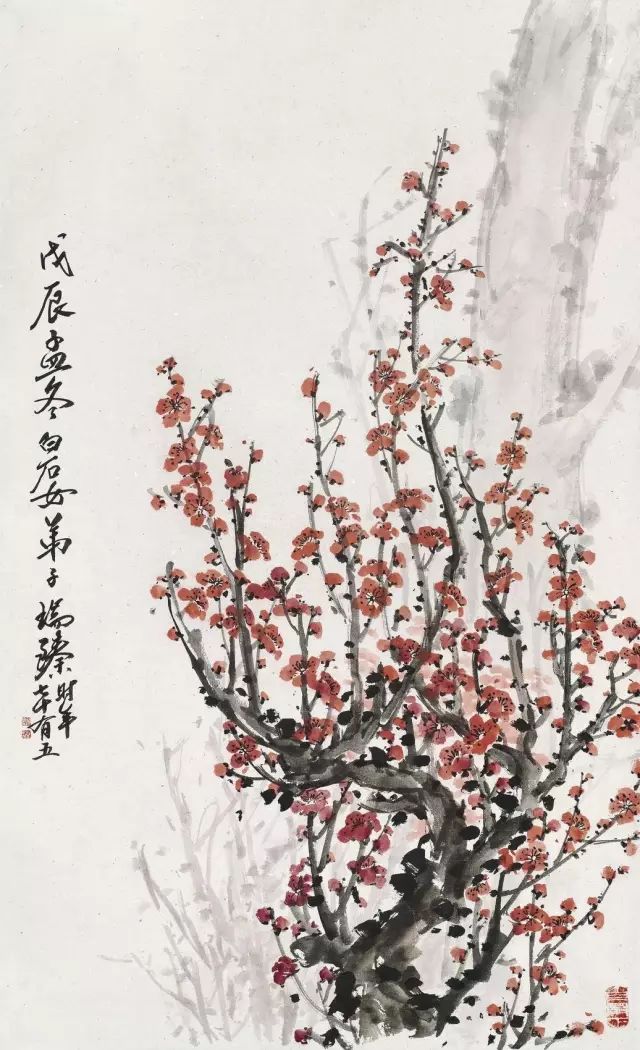 戊辰孟冬白石女弟子瑞臻时年
有五